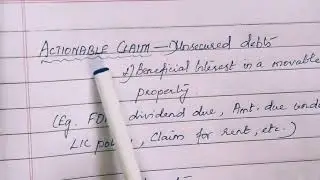 ACTIONABLE CLAIM — 1) Unsecured debts
2) Beneficial Interest in a movable
property
(Eg. FDR, dividend due, Amt. due under
LIC policy, Claim for rent, etc.)